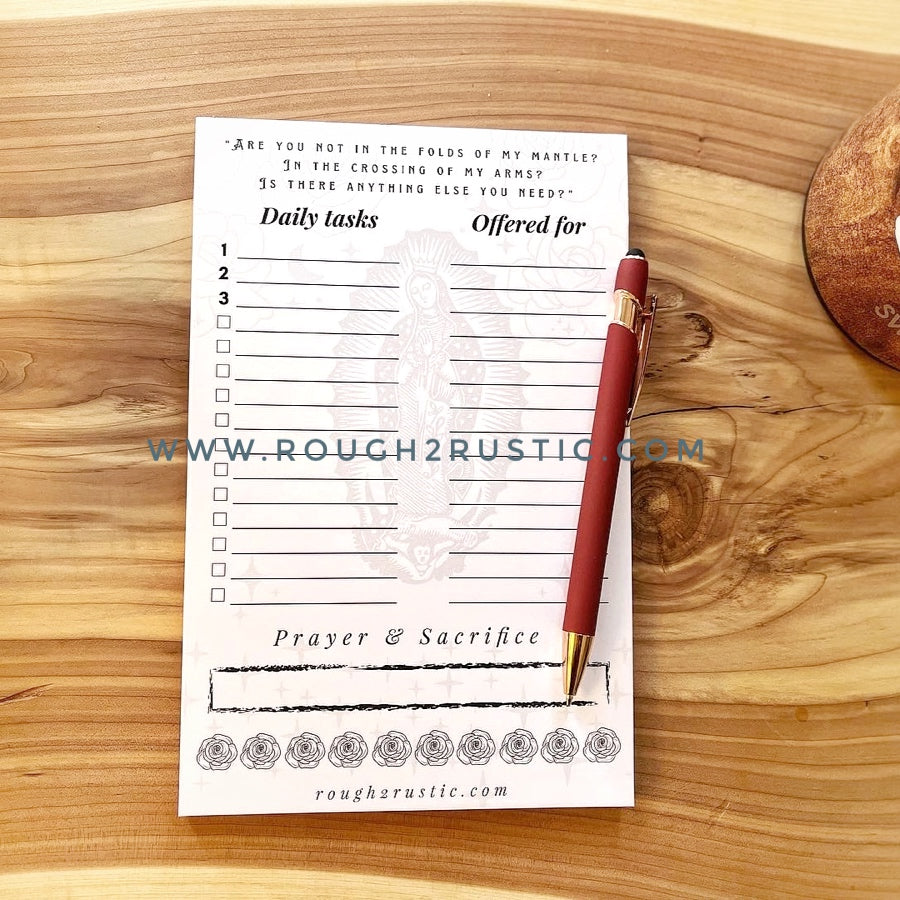 "Are you not in the folds of my mantle?
In the crossing of my arms?
Is there anything else you need?"
Daily tasks Offered for
1
2
3
WWW.ROUGH2RUSTIC.COM
Prayer & Sacrifice
rough2rustic.com